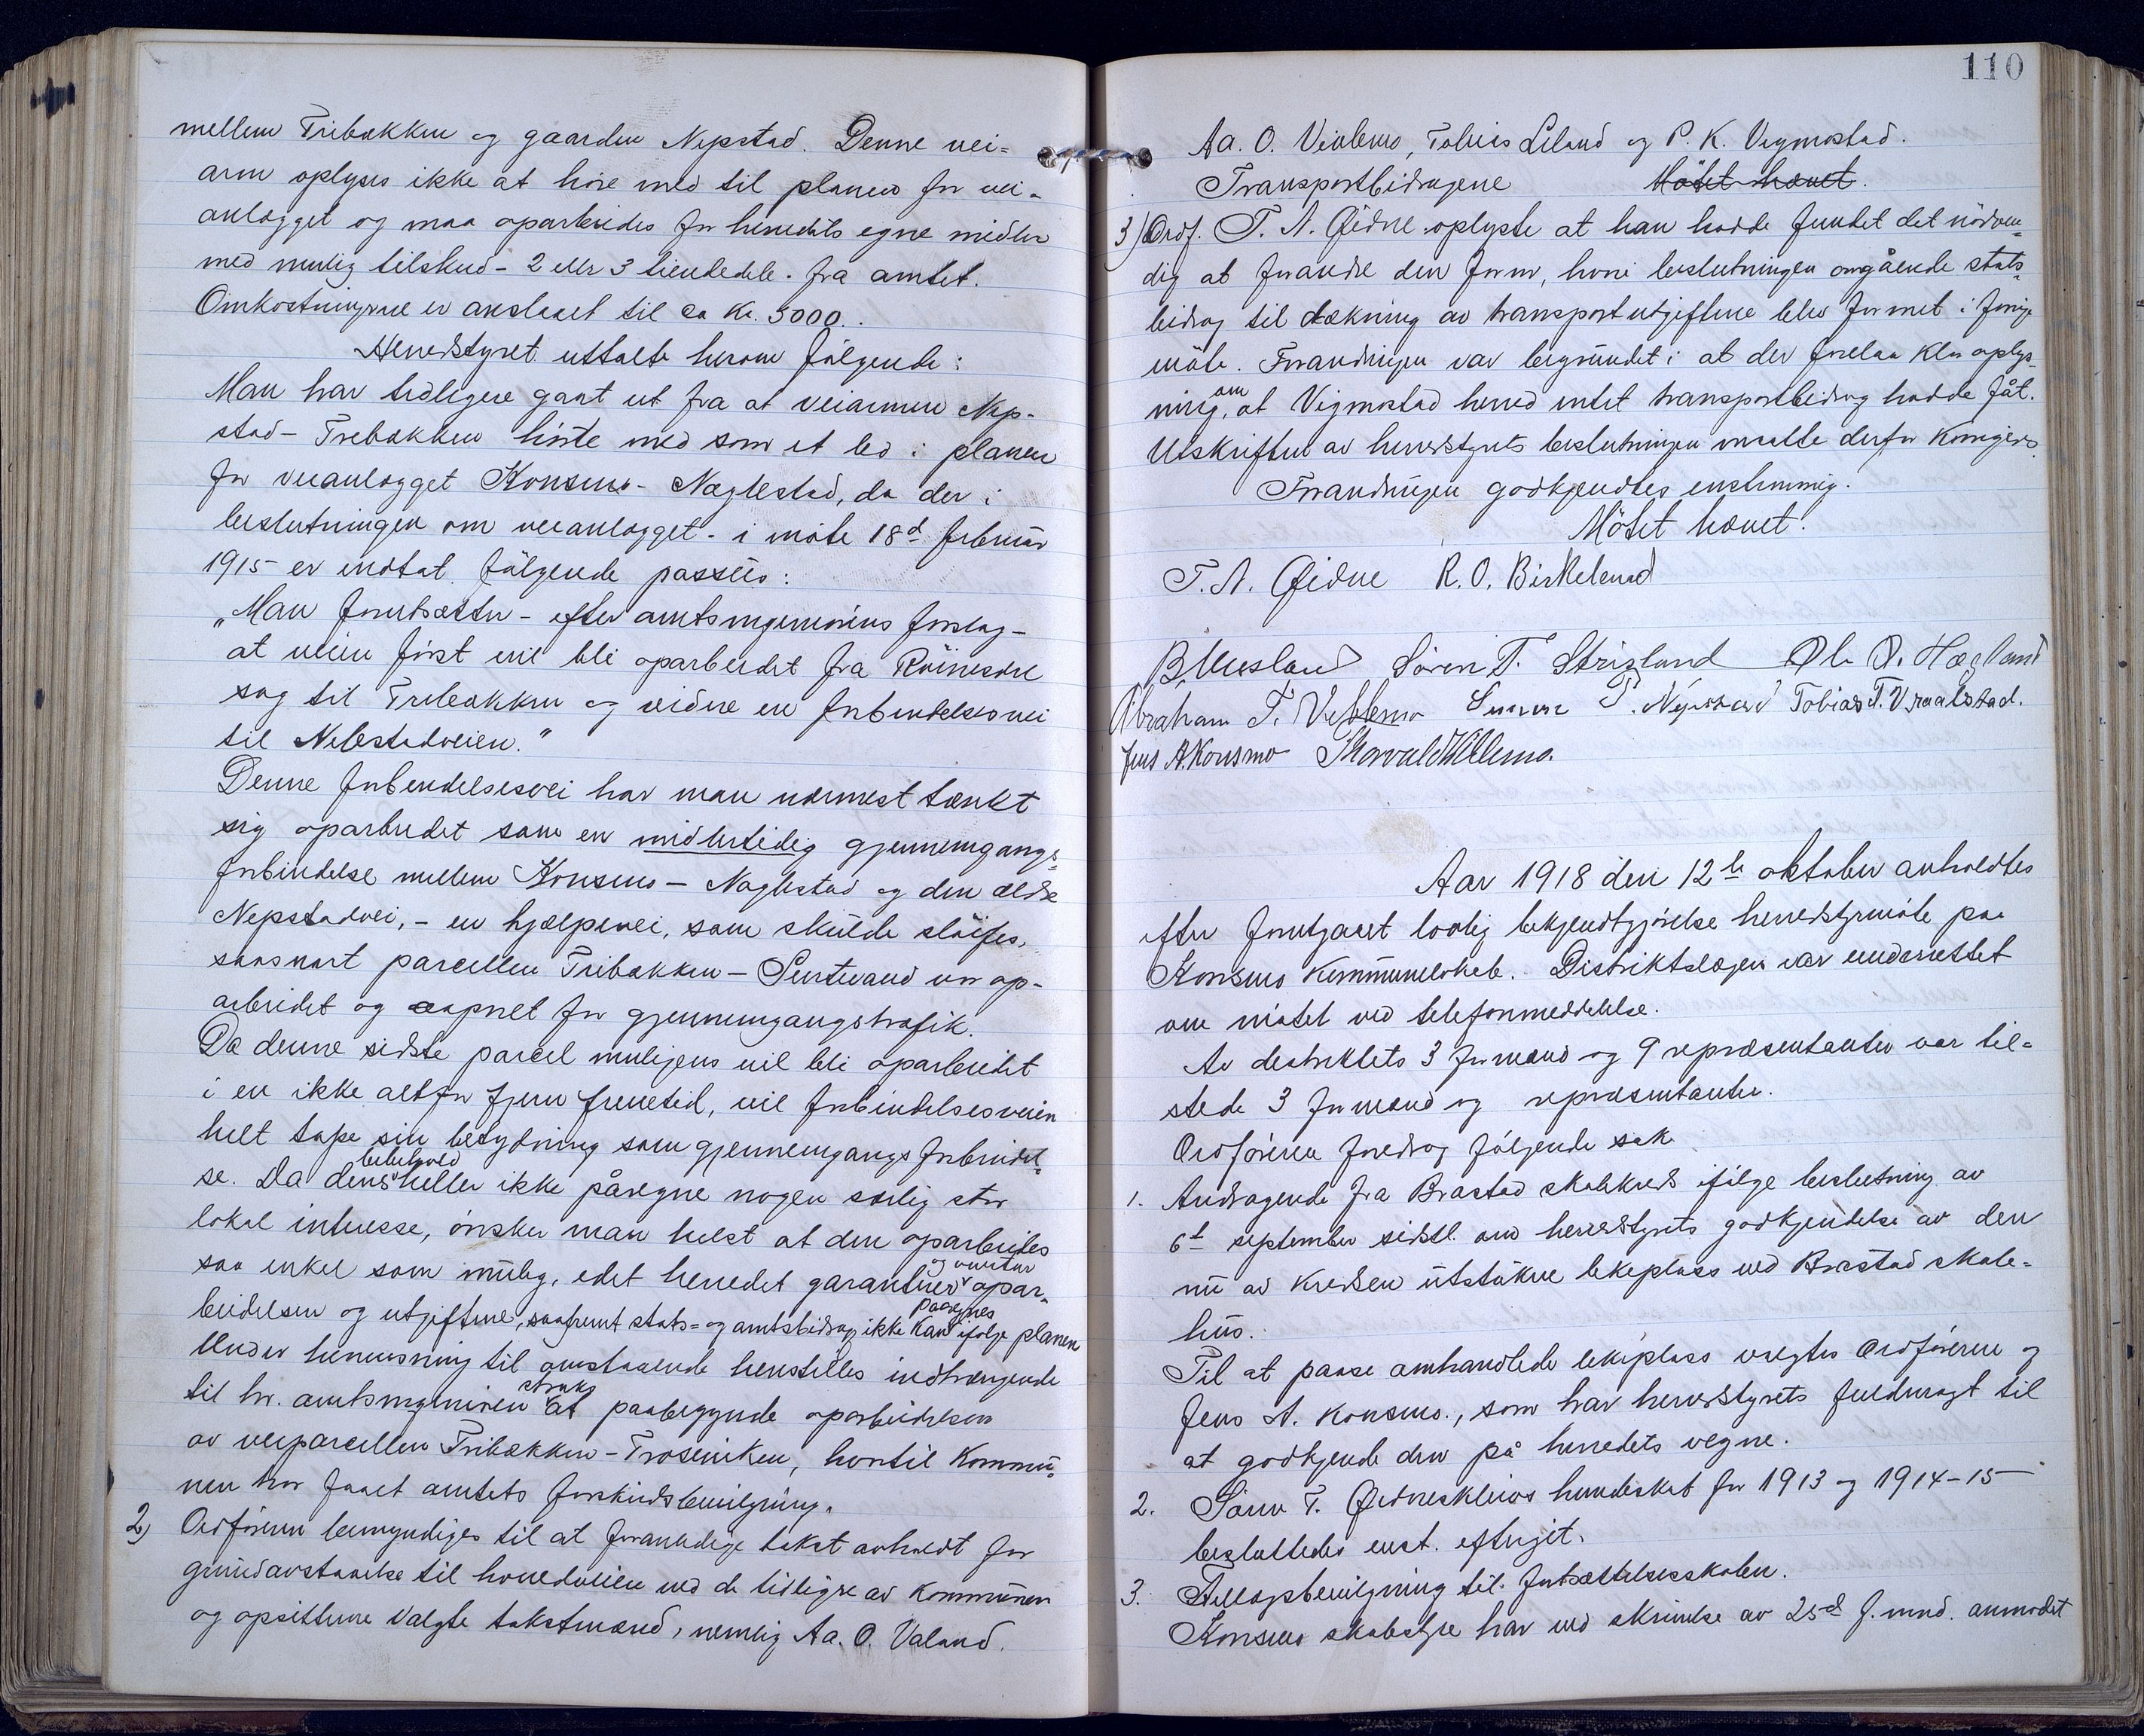 mellem Trebækken og gaarden Nepstad. Denne vei-
arm oplyses ikke at høre med til planen for vei-
anlægget og maa oparbeides for herredets egne midler
med mulig tilskud - 2 eller 3 tiendedele - fra amtet.
Omkostningerne er anslaaet til ca Kr. 5000.
Herredstyret uttalte herom følgende:
Man har tidligere gaat ut fra at veiarmen Nep-
stad - Trebækken hørte med som et led i planen
for veianlægget Konsmo - Naglestad, da der i
beslutningen om veianlægget - i møte 18d februar
1915 er indtat følgende passus:
"Man forutsætter - efter amtsingeniørens forslag -
at veien først vil bli oparbeidet fra
sag til Trebækken og videre en forbindelsesvei
til Nebstadveien."
Denne forbindelsesvei har man nærmest tænkt
sig oparbeidet som en midlertidig gjennemgangs-
forbindelse mellem Konsmo - Naglestad og den ældre
Nepstadvei, - en hjælpevei, som skulde sløifes,
saasnart parcellen Trebækken - Surtevand var op-
arbeidet og aapnet for gjennemgangstrafik.
Da denne sidste parcel muligens vil bli oparbeidet
i en ikke altfor fjern fremtid, vil forbindelsesveien
helt tape sin betydning som gjennemgangsforbindel-
se. Da dens bibehold heller ikke påregne nogen særlig stor
lokal interesse, ønsker man helst at den oparbeides
saa enkel som mulig, idet herredet garanterer og opar-
beidelsen og utgifterne, saafremt stats- og amtsbidrag ikke kan paaregnes ifølge planen
Under henvisning til omstaaende henstilles indtrængende
til hr. amtsingeniøren straks at paabegynde oparbeidelsen
av veiparcellen Trebækken - Troseviken, hvortil kommu-
nen har faaet amtets forskudsbevilgning.
2) Ordføreren bemyndiges til at foranledige takst avholdt for
grundavstaaelse til hovedveien ved de tidligere av kommunen
og opsitterne valgte takstmænd, nemlig Aa. O. Valand.
110
Aa. O. Viblemo, Tobias Liland og P. K. Vigmostad.
Transportbidragene Møtet hævet.
3) Ordf. T. A. Øidne oplyste at han hadde fundet det nødven-
dig at forandre den form, hvori beslutningen angående stats-
bidrag til dækning av transportutgifterne blev formet i forrige
møte. Forandringen var begrundet i at der forelaa klar oplys-
ning om, at Vigmostad herred intet transportbidrag hadde fåt.
Utskriften av herredstyrets beslutningen maatte derfor korrigeres.
Forandringen godkjendtes enstemmig.
Møtet hævet.
T. A. Øidne R. O. Birkeland
B. Uusland Søren T. Strisland Ole O. Hægland
Abraham T. Viblemo Gunnar T. Nepstad Tobias T. Vraalstad.
Jens A. Konsmo Thorvald Viblemo.
Aar 1918 den 12te oktober avholdtes
efter forutgaaet lovlig bekjendtgjørelse herredstyrmøte paa
Konsmo kommunelokale. Distriktslægen var underrettet
om møtet ved telefonmeddelelse.
Av distriktets 3 formænd og 9 repræsentanter var til-
stede 3 formænd og repræsentanter.
Ordføreren foredrog følgende sak
1. Andragende fra Brastad skolekreds ifølge beslutning av
6t september sidstl. om herredstyrets godkjendelse av den
nu av kredsen utstukne lekeplass ved Brastad skole-
hus.
Til at paase omhandlede lekeplass valgtes ordføreren og
Jens A. Konsmo., som har herredstyrets fuldmagt til
at godkjende den på herredets vegne.
2. Søren T. Øidneskleivs hundeskat for 1913 og 1914-15
besluttedes enst. eftergit.
3. Tillægsbevilgning til fortsættelsesskolen.
Konsmo skolestyre har ved skrivelse av 25d f. mnd. anmodet